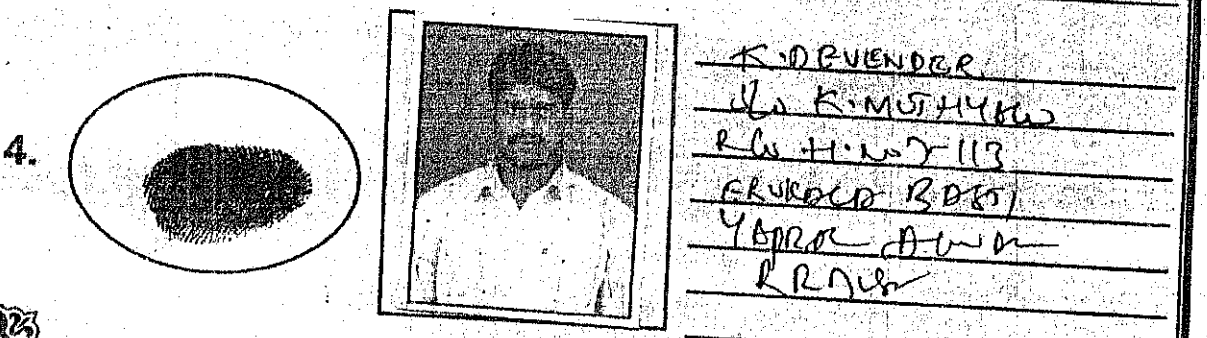 4.
K. DEVENDER
S/o K. MUTHYALU
R/o H.No 7-113
ERUKALA BASTI
YAPRAL
R R Dist